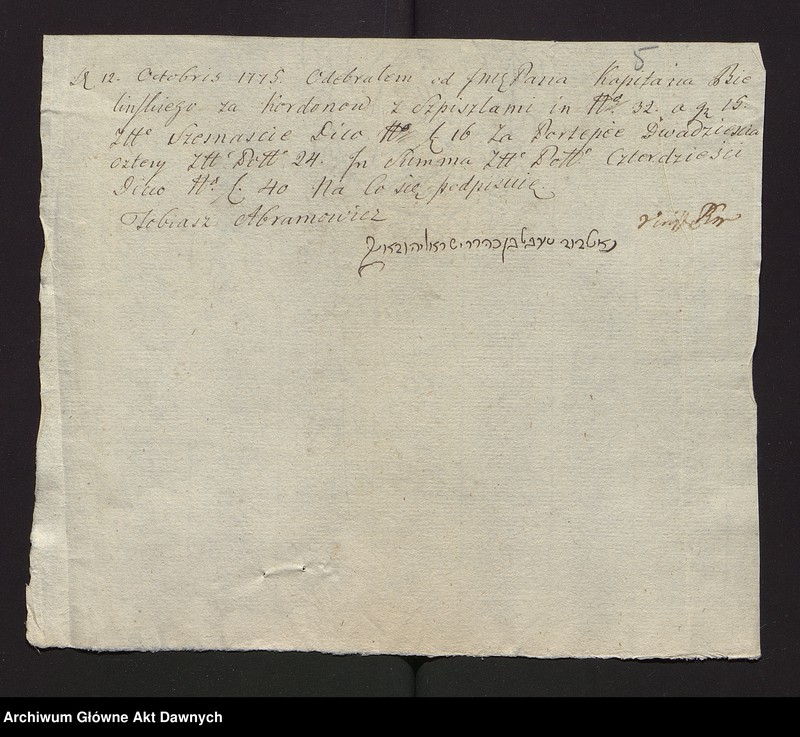 5
D 12. Octobris 1775. Odebrałem od JmćPana Kapitana Bie
linskiego za kordonow z Szpiszlami in No. 32. a gr 15.
Złł Szesnascie Dico No f. 16 Za Portepée Dwadziescia
cztery Złł Poll 24. In Summa Złł Poll Czterdzieści
Dico No. f. 40 Na Co się podpisuię.
Tobiasz Abramowicz
Archiwum Główne Akt Dawnych